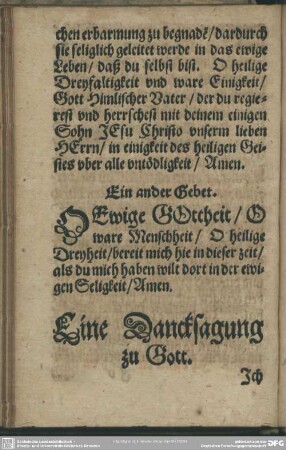 chen erbarmung zu begnadē/dardurch
sie seliglich geleitet werde in das ewige
Leben/ daß du selbst bist. O heilige
Dreyfaltigkeit vnd ware Einigkeit/
Gott Himlischer Vater/ der du regie-
rest vnd herrschest mit deinem einigen
Sohn JEsu Christo vnserm lieben
HErrn/ in einigkeit des heiligen Gei-
stes vber alle vntödligkeit/ Amen.
Ein ander Gebet.
O Ewige GOttheit/ O
ware Menschheit/ O heilige
Dreyheit/bereit mich hie in dieser zeit/
als du mich haben wilt dort in der ewi-
gen Seligkeit/Amen.
Eine Dancksagung
zu Gott.
Ich
DFG